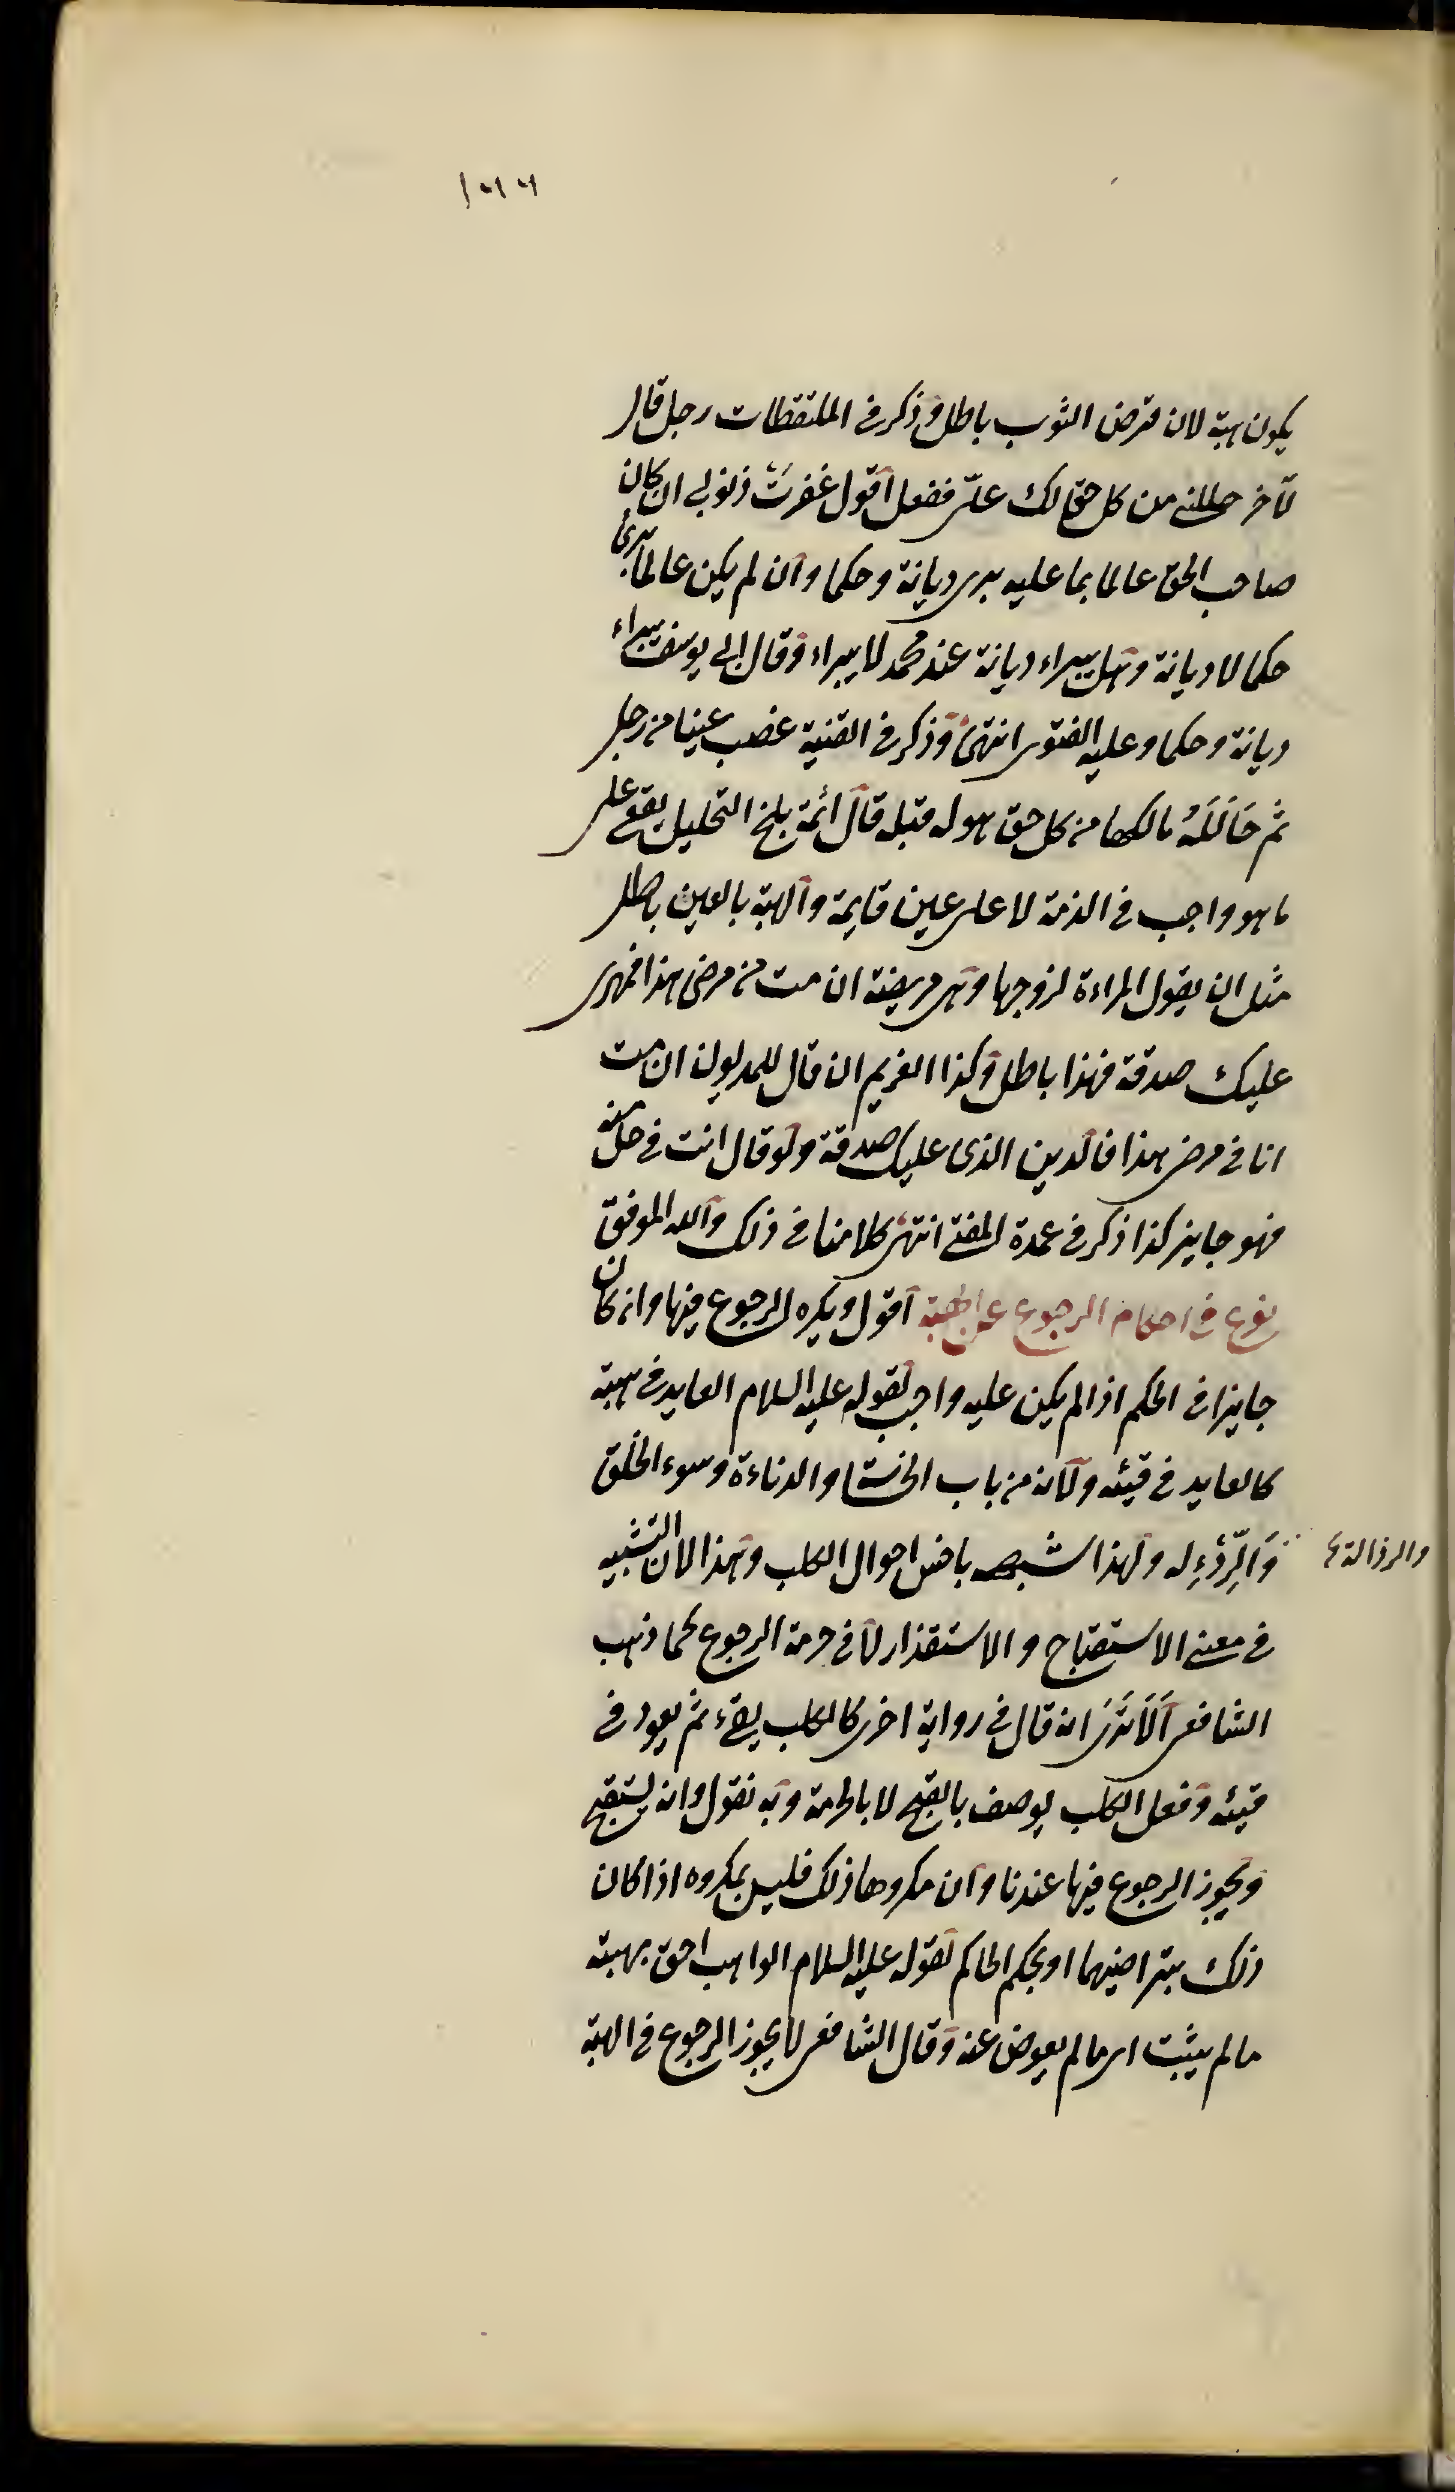 يكون هبة لان قرض الثوب باطل وذكر فى الملتقطات رجل قال
لآخر حللنى من كل حق لك علىّ ففعل اقول غفرتَ ذنوبى ان كان
صاحب الحق عالما بما عليه برى ديانة وحكما وان لم يكن عالما برئ
حكما لا ديانة وهل يبراء ديانة عند محمد لا يبراء وقال ابى يوسف يبراء
ديانة وحكما وعليه الفتوى انتهى وذكر فى القنية غصب عينا من رجل
ثم حَالَلَهُ مالكها من كل حق هو له قبله قال ائمة بلخ التحليل يقع على
ما هو واجب فى الذمة لا على عين قايمة والهبة بالعين باطل
مثل ان يقول المراءة لزوجها وهى مريضة ان مت من مرضى هذا فمهرى
عليك صدقة فهذا باطل وكذا الغريم ان قال للمديون ان مت
انا فى مرضى هذا فالدين الذى عليك صدقة ولو قال انت فى حل منه
فهو جايز كذا ذكر فى عمدة المفتى انتهى كلامنا فى ذلك والله الموفق
نوع فى احكام الرجوع عن الهبة اقول ويكره الرجوع فيها وان كان
جايزا فى الحكم اذا لم يكن عليه واجب لقوله عليه السلام العايد فى هبته
كالعايد فى قيئه ولانه من باب الخساسة والدناءة وسوء الخلق
وَالرّذءِله ولهذا شبهه باخس احوال الكلب وهذا لان التشبيه
والرذالة
فى معنى الاستقباح والاستقذار لا فى حرمة الرجوع كما ذهب
الشافعى اَلَا تَرَى انه قال فى رواية اخرى كالكلب يقىء ثم يعود فى
قيئه وفعل الكلب يوصف بالقبح لا بالحرمة وبه نقول وانه يستقبح
ويجوز الرجوع فيها عندنا وان مكروها ذلك فليس بمكروه اذا كان
ذلك بتراضيهما او بحكم الحاكم لقوله عليه السلام الواهب احق بهبته
ما لم يثبت اى ما لم يعوض عنه وقال الشافعى لا يجوز الرجوع فى الهبة